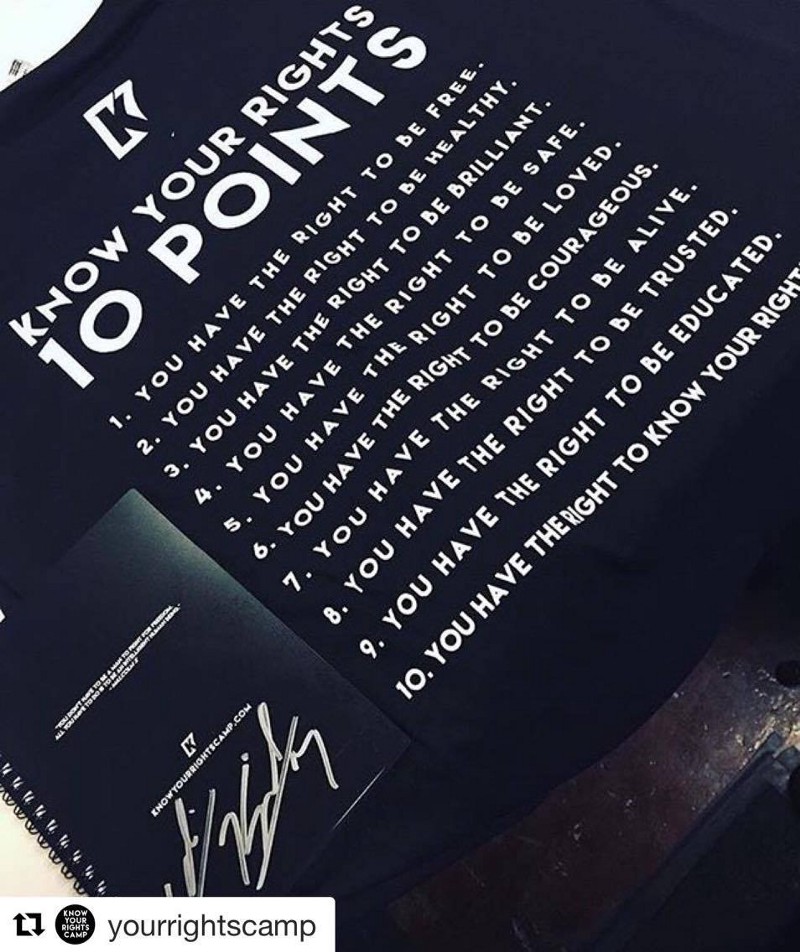 KNOW YOUR RIGHTS
10 POINTS
1. YOU HAVE THE RIGHT TO BE FREE.
2. YOU HAVE THE RIGHT TO BE HEALTHY.
3. YOU HAVE THE RIGHT TO BE BRILLIANT.
4. YOU HAVE THE RIGHT TO BE SAFE.
5. YOU HAVE THE RIGHT TO BE LOVED.
6. YOU HAVE THE RIGHT TO BE COURAGEOUS.
7. YOU HAVE THE RIGHT TO BE ALIVE.
8. YOU HAVE THE RIGHT TO BE TRUSTED.
9. YOU HAVE THE RIGHT TO BE EDUCATED.
10. YOU HAVE THE RIGHT TO KNOW YOUR RIGHT
"YOU DON'T HAVE TO BE A MAN TO FIGHT FOR FREEDOM.
ALL YOU HAVE TO DO IS TO BE AN INTELLIGENT HUMAN BEING."
- MALCOLM X
KNOWYOURRIGHTSCAMP.COM
KNOW
YOUR
RIGHTS
CAMP
yourrightscamp